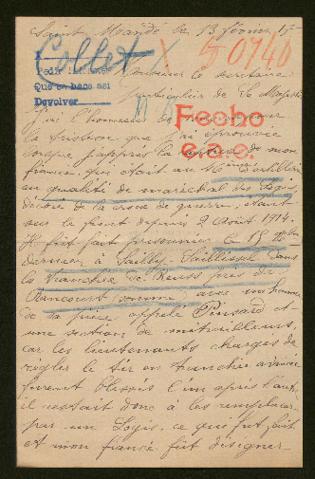 Saint Mandé le 13 février 17
Collet X 50740
Pedir informe
Que se hace así
Devolver
Monsieur le secrétaire
particulier de Sa Majesté
J'ai l'honneur de
Fecho
c.a.c.
la tristesse que j'ai éprouvée
lorsque j'appris la de mon
fiancé, qui était au d'artillerie
en qualité de maréchal des logis,
décoré de la croix de guerre, étant
sur le front depuis 2 Août 1914.
Il fut fait prisonnier le 15 9bre
dernier à Sailly-Saillisel dans
la tranchée de Reuss près de
Rancourt comme avec un homme
de sa pièce, appelé Pinsard et
une section de mitrailleuses,
car les lieutenants chargés de
régler le tir en tranchée avancée
furent blessés l'un après l'autre
il restait donc à les remplacer
par un Logis, ce qui fut fait
et mon fiancé fut désigner